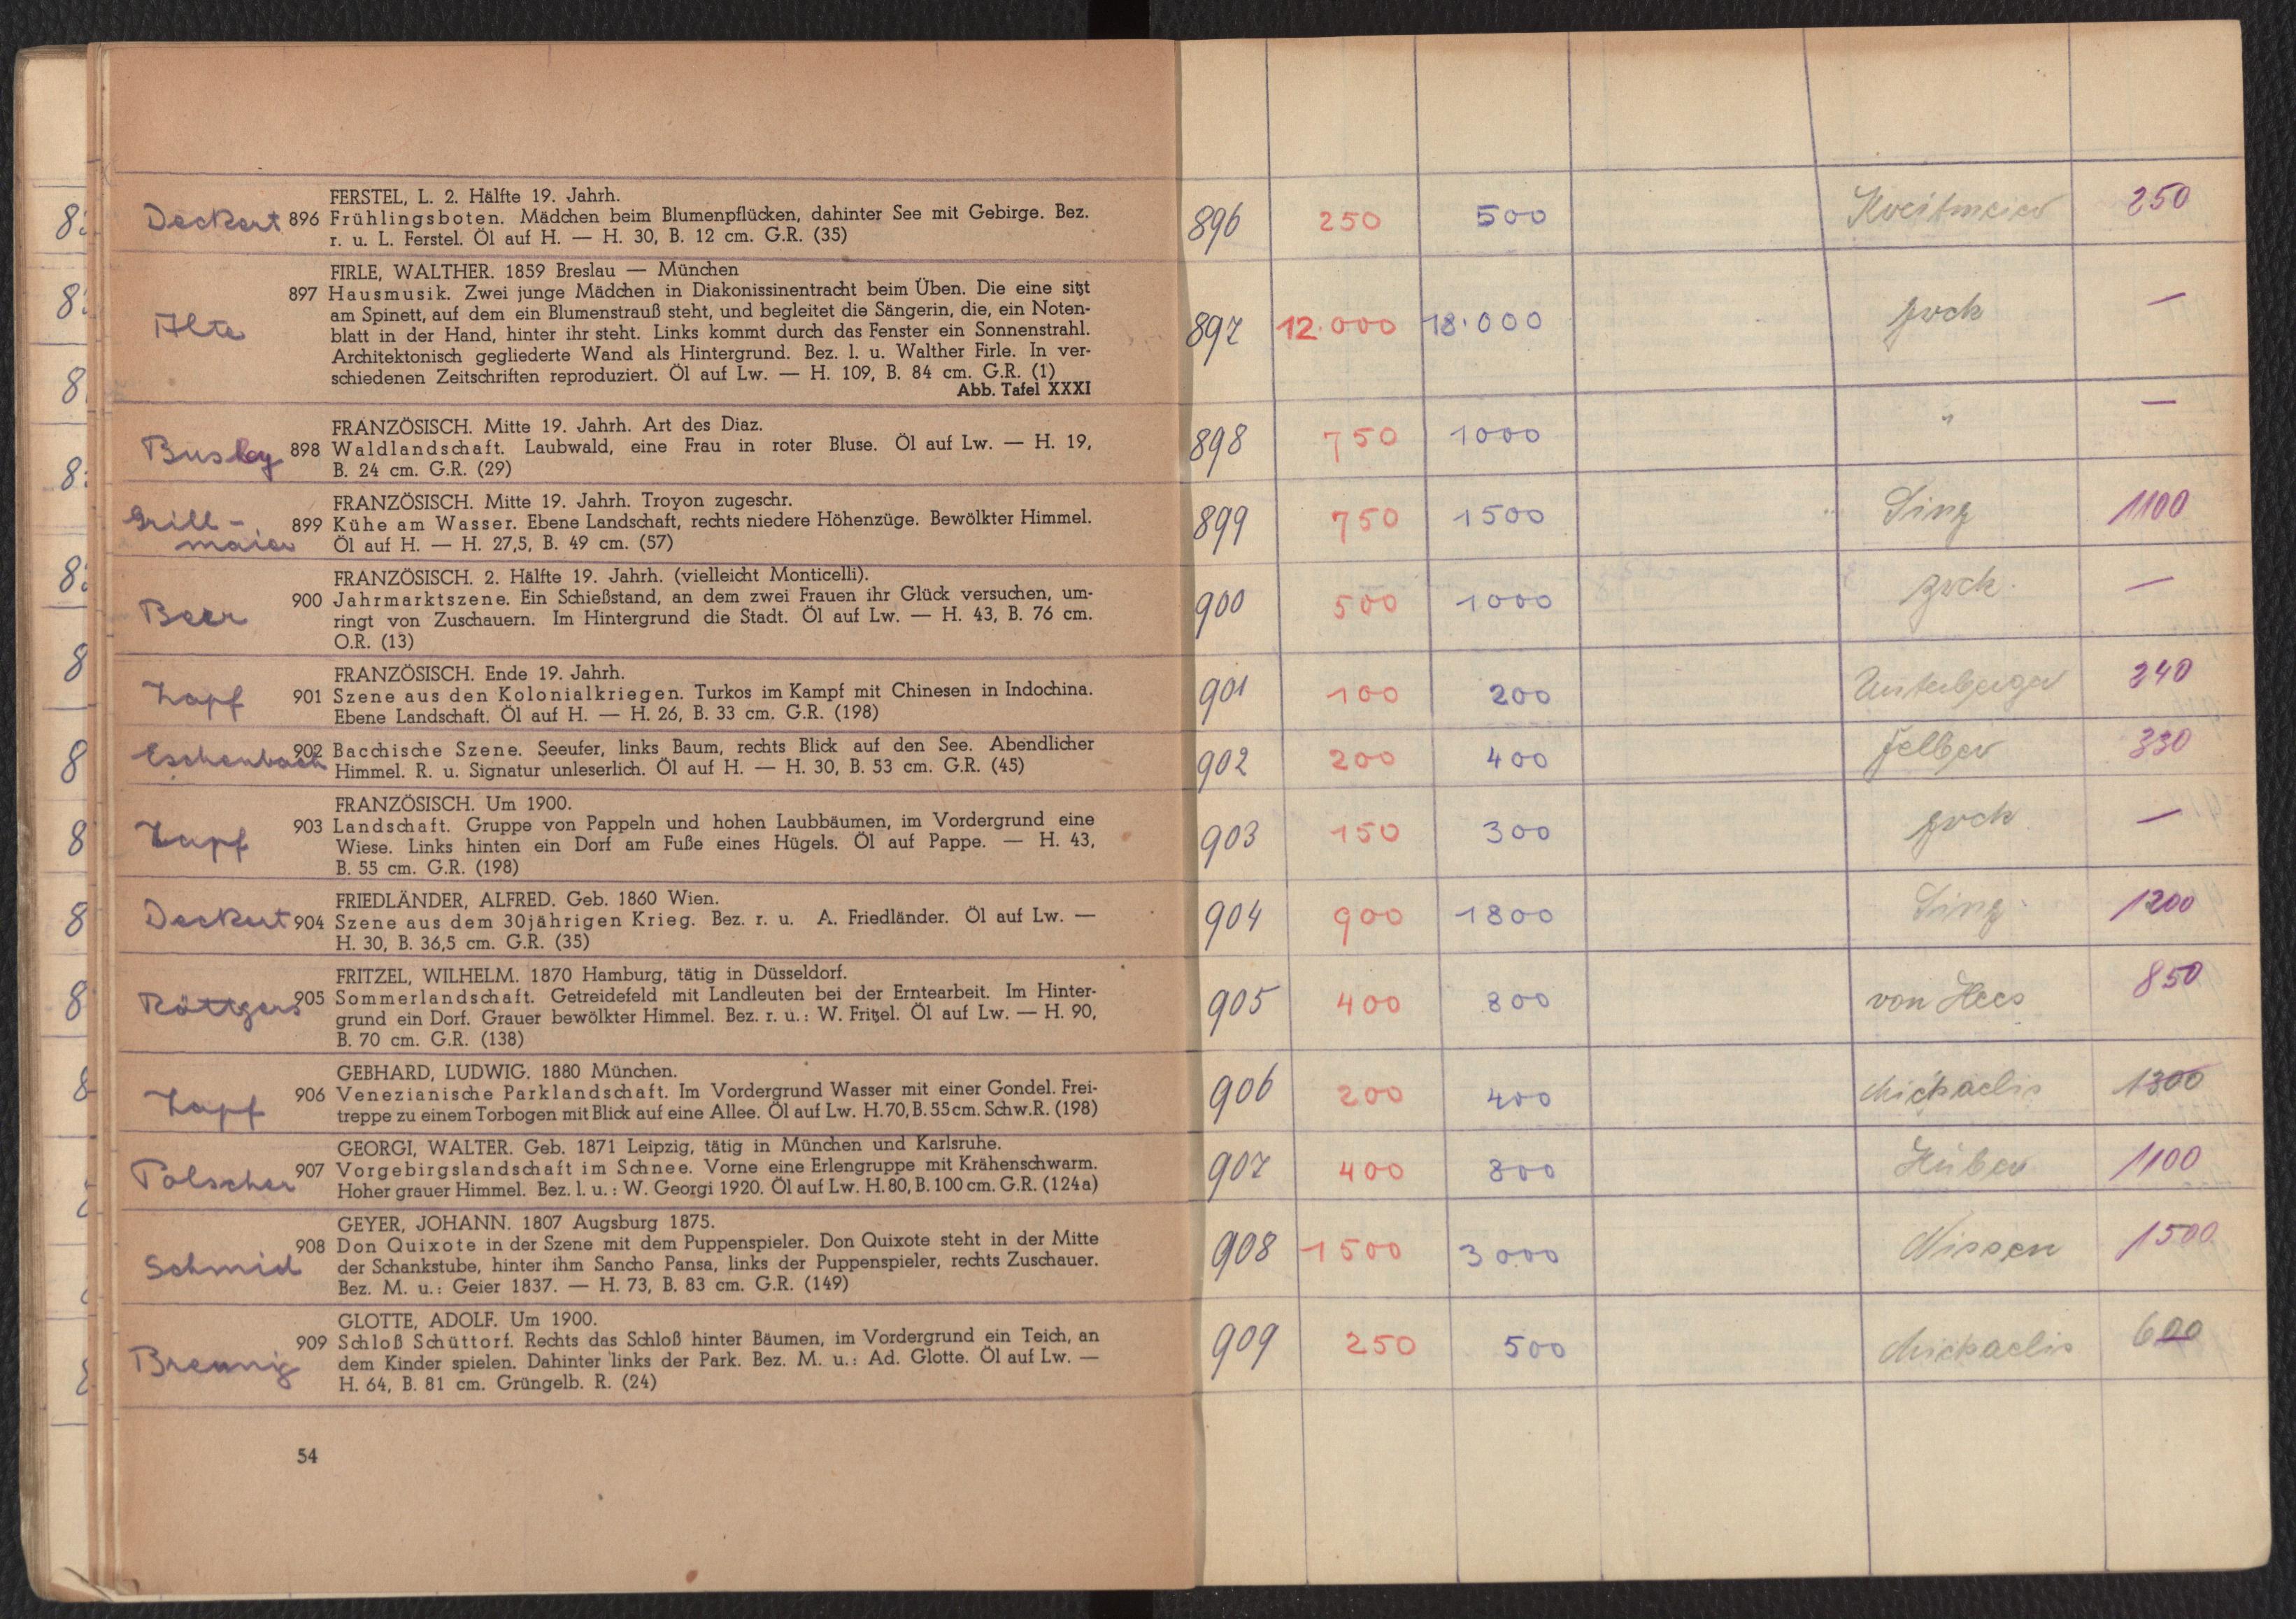 FERSTEL, L. 2. Hälfte 19. Jahrh.
Deckert 896 Frühlingsboten. Mädchen beim Blumenpflücken, dahinter See mit Gebirge. Bez.
r. u. L. Ferstel. Öl auf H. — H. 30, B. 12 cm. G.R. (35)
FIRLE, WALTHER. 1859 Breslau — München
897 Hausmusik. Zwei junge Mädchen in Diakonissinentracht beim Üben. Die eine sitzt
am Spinett, auf dem ein Blumenstrauß steht, und begleitet die Sängerin, die, ein Noten-
blatt in der Hand, hinter ihr steht. Links kommt durch das Fenster ein Sonnenstrahl.
Architektonisch gegliederte Wand als Hintergrund. Bez. l. u. Walther Firle. In ver-
schiedenen Zeitschriften reproduziert. Öl auf Lw. — H. 109, B. 84 cm. G.R. (1)
Abb. Tafel XXXI
FRANZÖSISCH. Mitte 19. Jahrh. Art des Diaz.
Busley 898 Waldlandschaft. Laubwald, eine Frau in roter Bluse. Öl auf Lw. — H. 19,
B. 24 cm. G.R. (29)
FRANZÖSISCH. Mitte 19. Jahrh. Troyon zugeschr.
Grill- 899 Kühe am Wasser. Ebene Landschaft, rechts niedere Höhenzüge. Bewölkter Himmel.
maier Öl auf H. — H. 27,5, B. 49 cm. (57)
FRANZÖSISCH. 2. Hälfte 19. Jahrh. (vielleicht Monticelli).
Beer 900 Jahrmarktszene. Ein Schießstand, an dem zwei Frauen ihr Glück versuchen, um-
ringt von Zuschauern. Im Hintergrund die Stadt. Öl auf Lw. — H. 43, B. 76 cm.
O.R. (13)
FRANZÖSISCH. Ende 19. Jahrh.
Zapf 901 Szene aus den Kolonialkriegen. Turkos im Kampf mit Chinesen in Indochina.
Ebene Landschaft. Öl auf H. — H. 26, B. 33 cm. G.R. (198)
Eschenbach 902 Bacchische Szene. Seeufer, links Baum, rechts Blick auf den See. Abendlicher
Himmel. R. u. Signatur unleserlich. Öl auf H. — H. 30, B. 53 cm. G.R. (45)
FRANZÖSISCH. Um 1900.
Zapf 903 Landschaft. Gruppe von Pappeln und hohen Laubbäumen, im Vordergrund eine
Wiese. Links hinten ein Dorf am Fuße eines Hügels. Öl auf Pappe. — H. 43,
B. 55 cm. G.R. (198)
FRIEDLÄNDER, ALFRED. Geb. 1860 Wien.
Deckert 904 Szene aus dem 30jährigen Krieg. Bez. r. u. A. Friedländer. Öl auf Lw. —
H. 30, B. 36,5 cm. G.R. (35)
FRITZEL, WILHELM. 1870 Hamburg, tätig in Düsseldorf.
Röttgers 905 Sommerlandschaft. Getreidefeld mit Landleuten bei der Erntearbeit. Im Hinter-
grund ein Dorf. Grauer bewölkter Himmel. Bez. r. u.: W. Fritzel. Öl auf Lw. — H. 90,
B. 70 cm. G.R. (138)
GEBHARD, LUDWIG. 1880 München.
Zapf 906 Venezianische Parklandschaft. Im Vordergrund Wasser mit einer Gondel. Frei-
treppe zu einem Torbogen mit Blick auf eine Allee. Öl auf Lw. H. 70, B. 55 cm. Schw.R. (198)
GEORGI, WALTER. Geb. 1871 Leipzig, tätig in München und Karlsruhe.
Polscher 907 Vorgebirgslandschaft im Schnee. Vorne eine Erlengruppe mit Krähenschwarm.
Hoher grauer Himmel. Bez. l. u.: W. Georgi 1920. Öl auf Lw. H. 80, B. 100 cm. G.R. (124a)
GEYER, JOHANN. 1807 Augsburg 1875.
Schmid 908 Don Quixote in der Szene mit dem Puppenspieler. Don Quixote steht in der Mitte
der Schankstube, hinter ihm Sancho Pansa, links der Puppenspieler, rechts Zuschauer.
Bez. M. u.: Geier 1837. — H. 73, B. 83 cm. G.R. (149)
GLOTTE, ADOLF. Um 1900.
909 Schloß Schüttorf. Rechts das Schloß hinter Bäumen, im Vordergrund ein Teich, an
dem Kinder spielen. Dahinter links der Park. Bez. M. u.: Ad. Glotte. Öl auf Lw. —
H. 64, B. 81 cm. Grüngelb. R. (24)
54
896 250 500 Kreitmeier 250
897 12.000 18.000 zrck —
898 750 1000 " —
899 750 1500 Sing 1100
900 500 1000 zrck. —
901 100 200 Unterberger 240
902 200 400 Felber 330
903 150 300 zrck —
904 900 1800 Sing 1200
905 400 800 von Hees 850
906 200 400 Michaelis 1300
907 400 800 Huber 1100
908 1500 3000 Nissen 1500
909 250 500 Michaelis 600